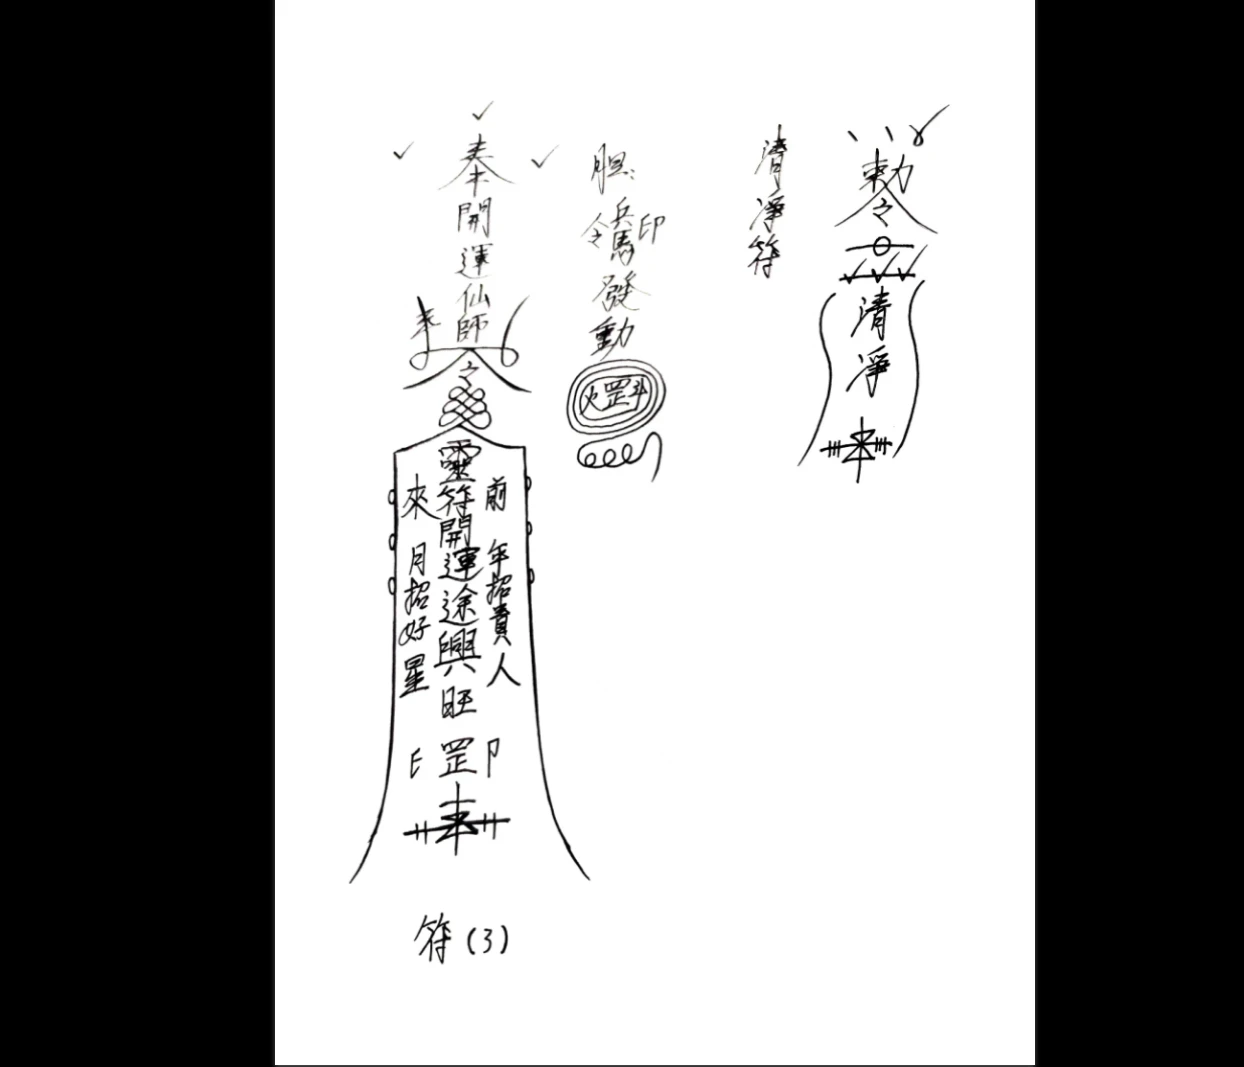 奉開運仙師
令
靈符開運途興旺
前年招貴人
來月招好星
罡
印
符(3)
胆:
令兵馬發動
印
火罡斗
清淨符
勅令
清淨